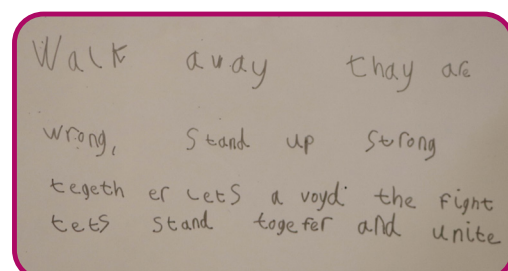 Walk away thay are
wrong, Stand up strong
tegeth er Lets a voyd the fight
Lets stand togefer and unite